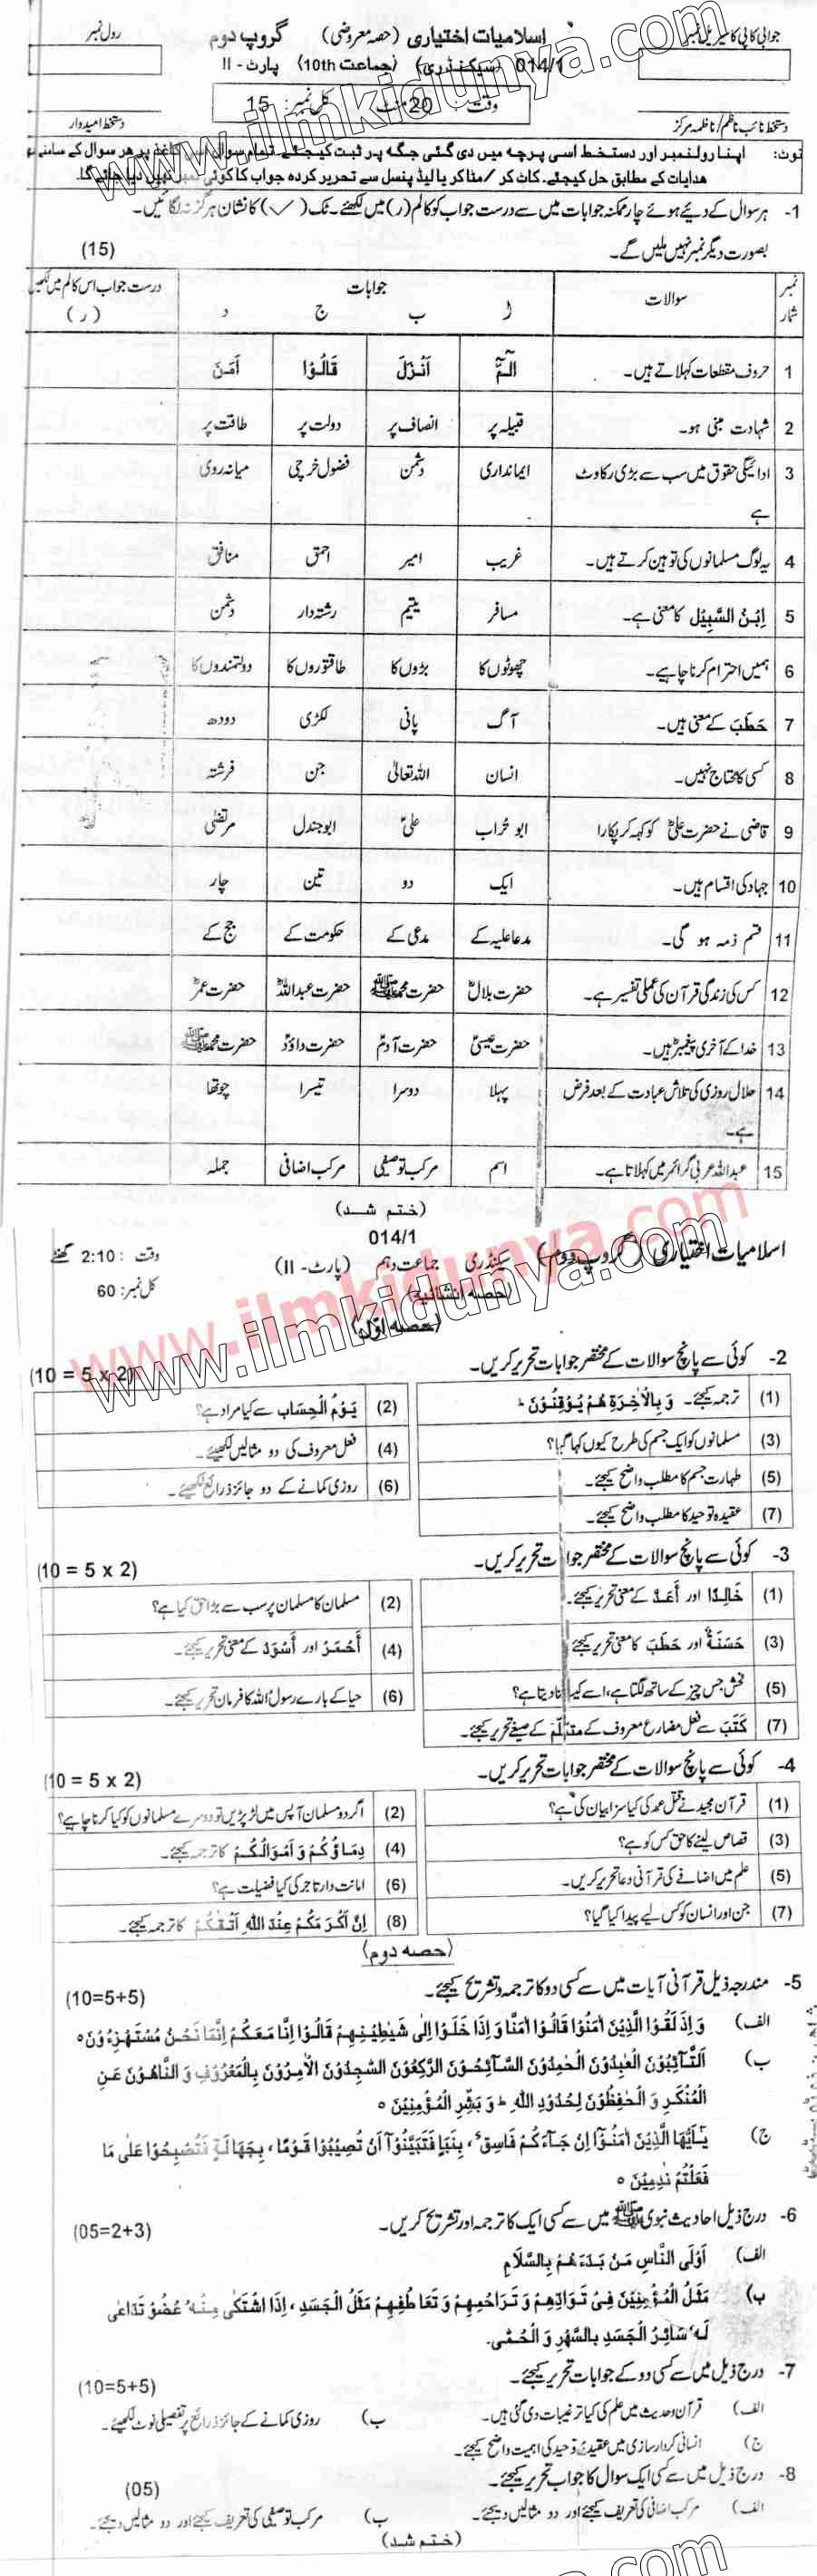 جوابی کاپی کا سیریل نمبر اسلامیات اختیاری (حصہ معروضی) گروپ دوم رول نمبر
014/1 (سیکنڈری) (جماعت 10th) پارٹ - II
وقت: 20 منٹ کل نمبر: 15
دستخط نائب ناظم / ناظمہ مرکز دستخط امیدوار
نوٹ: اپنا رولنمبر اور دستخط اسی پرچہ میں دی گئی جگہ پر ثبت کیجئے۔ تمام سوال اسی کاغذ پر ہر سوال کے سامنے
ہدایات کے مطابق حل کیجئے۔ کاٹ کر / مٹا کر یا لیڈ پنسل سے تحریر کردہ جواب کا کوئی نمبر نہیں دیا جائے گا۔
1- ہر سوال کے دیئے ہوئے چار ممکنہ جوابات میں سے درست جواب کو کالم (ر) میں لکھئے۔ ٹک (✓) کا نشان ہرگز نہ لگائیں۔
بصورت دیگر نمبر نہیں ملیں گے۔ (15)
نمبر شمار سوالات جوابات درست جواب اس کالم میں لکھیں
ا ب ج د (ر)
1 حروف مقطعات کہلاتے ہیں۔ الٓمّٓ اَنْزَلَ قَالُوْا اٰمَنَ
2 شہادت مبنی ہو۔ قبیلہ پر انصاف پر دولت پر طاقت پر
3 ادائیگی حقوق میں سب سے بڑی رکاوٹ ایمانداری دشمن فضول خرچی میانہ روی
ہے
4 یہ لوگ مسلمانوں کی توہین کرتے ہیں۔ غریب امیر احمق منافق
5 اِبْنُ السَّبِیْل کا معنی ہے۔ مسافر یتیم رشتہ دار دشمن
6 ہمیں احترام کرنا چاہیے۔ چھوٹوں کا بڑوں کا طاقتوروں کا دولتمندوں کا
7 حَطَبَ کے معنی ہیں۔ آگ پانی لکڑی دودھ
8 کسی کا محتاج نہیں۔ انسان اللہ تعالیٰ جن فرشتہ
9 قاضی نے حضرت علیؓ کو کہہ کر پکارا ابو تراب علیؓ ابو جندل مرتضیٰ
10 جہاد کی اقسام ہیں۔ ایک دو تین چار
11 قسم ذمہ ہو گی۔ مدعا علیہ کے مدعی کے حکومت کے جج کے
12 کس کی زندگی قرآن کی عملی تفسیر ہے۔ حضرت بلالؓ حضرت محمدﷺ حضرت عبداللہؓ حضرت عمرؓ
13 خدا کے آخری پیغمبر ہیں۔ حضرت عیسیٰؑ حضرت آدمؑ حضرت داؤدؑ حضرت محمدﷺ
14 حلال روزی کی تلاش عبادت کے بعد فرض پہلا دوسرا تیسرا چوتھا
ہے۔
15 عبداللہ عربی گرائمر میں کہلاتا ہے۔ اسم مرکب توصیفی مرکب اضافی جملہ
(ختم شد)
014/1
اسلامیات اختیاری (گروپ دوم) سیکنڈری جماعت دہم (پارٹ - II) وقت : 2:10 گھنٹے
(حصہ انشائیہ) کل نمبر: 60
(حصہ اول)
2- کوئی سے پانچ سوالات کے مختصر جوابات تحریر کریں۔ (10 = 5 x 2)
(1) ترجمہ کیجئے۔ وَ بِالْاٰخِرَةِ هُمْ یُوْقِنُوْنَ ط (2) یَوْمُ الْحِسَاب سے کیا مراد ہے؟
(3) مسلمانوں کو ایک جسم کی طرح کیوں کہا گیا؟ (4) فعل معروف کی دو مثالیں لکھیئے۔
(5) طہارت جسم کا مطلب واضح کیجئے۔ (6) روزی کمانے کے دو جائز ذرائع لکھیئے۔
(7) عقیدہ توحید کا مطلب واضح کیجئے۔
3- کوئی سے پانچ سوالات کے مختصر جوابات تحریر کریں۔ (10 = 5 x 2)
(1) خَالِدًا اور اَعَدَّ کے معنی تحریر کیجئے۔ (2) مسلمان کا مسلمان پر سب سے بڑا حق کیا ہے؟
(3) حَسَنَةٌ اور حَطَبَ کا معنی تحریر کیجئے (4) اَحْمَرُ اور اَسْوَدُ کے معنی تحریر کیجئے۔
(5) فحش جس چیز کے ساتھ لگتا ہے، اسے کیسا بنا دیتا ہے؟ (6) حیا کے بارے رسولُ اللہ کا فرمان تحریر کیجئے۔
(7) كَتَبَ سے فعل مضارع معروف کے متکلم کے صیغے تحریر کیجئے۔
4- کوئی سے پانچ سوالات کے مختصر جوابات تحریر کریں۔ (10 = 5 x 2)
(1) قرآن مجید نے قتل عمد کی کیا سزا بیان کی ہے؟ (2) اگر دو مسلمان آپس میں لڑ پڑیں تو دوسرے مسلمانوں کو کیا کرنا چاہیے؟
(3) قصاص لینے کا حق کس کو ہے؟ (4) دِمَاؤُکُمْ وَ اَمْوَالُکُمْ کا ترجمہ کیجئے۔
(5) علم میں اضافے کی قرآنی دعا تحریر کریں۔ (6) امانت دار تاجر کی کیا فضیلت ہے؟
(7) جن اور انسان کو کس لیے پیدا کیا گیا؟ (8) اِنَّ اَکْرَمَکُمْ عِنْدَ اللّٰهِ اَتْقٰکُمْ کا ترجمہ کیجئے۔
(حصہ دوم)
5- مندرجہ ذیل قرآنی آیات میں سے کسی دو کا ترجمہ و تشریح کیجئے۔ (10=5+5)
الف) وَ اِذَا لَقُوا الَّذِیْنَ اٰمَنُوْا قَالُوْا اٰمَنَّا وَ اِذَا خَلَوْا اِلٰی شَیٰطِیْنِهِمْ قَالُوْا اِنَّا مَعَکُمْ اِنَّمَا نَحْنُ مُسْتَهْزِءُوْنَ ٥
ب) اَلتَّآئِبُوْنَ الْعٰبِدُوْنَ الْحٰمِدُوْنَ السَّآئِحُوْنَ الرّٰکِعُوْنَ السّٰجِدُوْنَ الْاٰمِرُوْنَ بِالْمَعْرُوْفِ وَ النَّاهُوْنَ عَنِ
الْمُنْکَرِ وَ الْحٰفِظُوْنَ لِحُدُوْدِ اللّٰهِ ط وَ بَشِّرِ الْمُؤْمِنِیْنَ ٥
ج) یٰٓاَیُّهَا الَّذِیْنَ اٰمَنُوْٓا اِنْ جَآءَکُمْ فَاسِقٌ، بِنَبَاٍ فَتَبَیَّنُوْٓا اَنْ تُصِیْبُوْا قَوْمًا، بِجَهَالَةٍ فَتُصْبِحُوْا عَلٰی مَا
فَعَلْتُمْ نٰدِمِیْنَ ٥
6- درج ذیل احادیث نبویﷺ میں سے کسی ایک کا ترجمہ اور تشریح کریں۔ (05=2+3)
الف) اَوْلَی النَّاسِ مَنْ بَدَءَهُمْ بِالسَّلَامِ
ب) مَثَلُ الْمُؤْمِنِیْنَ فِیْ تَوَادِّهِمْ وَ تَرَاحُمِهِمْ وَ تَعَاطُفِهِمْ مَثَلُ الْجَسَدِ، اِذَا اشْتَکٰی مِنْهُ عُضْوٌ تَدَاعٰی
لَهٗ سَائِرُ الْجَسَدِ بِالسَّهْرِ وَ الْحُمّٰی.
7- درج ذیل میں سے کسی دو کے جوابات تحریر کیجئے۔ (10=5+5)
الف) قرآن و حدیث میں علم کی کیا ترغیبات دی گئی ہیں۔ ب) روزی کمانے کے جائز ذرائع پر تفصیلی نوٹ لکھیئے۔
ج) انسانی کردار سازی میں عقیدۂ توحید کی اہمیت واضح کیجئے۔
8- درج ذیل میں سے کسی ایک سوال کا جواب تحریر کیجئے۔ (05)
الف) مرکب اضافی کی تعریف کیجئے اور دو مثالیں دیجئے۔ ب) مرکب توصیفی کی تعریف کیجئے اور دو مثالیں دیجئے۔
(ختم شد)
www.ilmkidunya.com
www.ilmkidunya.com
www.ilmkidunya.com